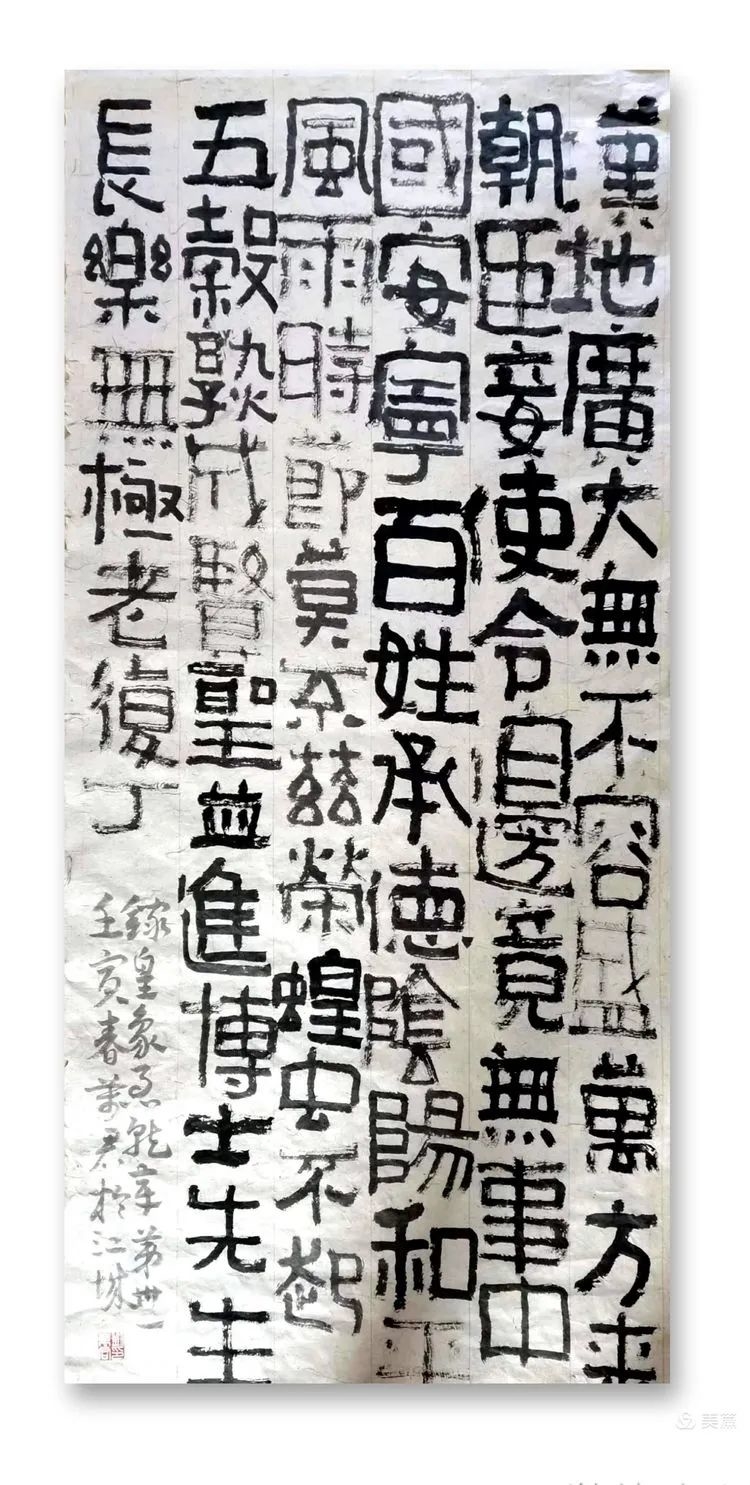 漢地廣大無不容盛萬方來
朝臣妾使令自邊竟無事中
國安寧百姓承德陰陽和平
風雨時節莫不茲榮蝗虫不起
五穀孰成賢聖並進博士先生
長樂無極老復丁
錄皇象急就章第卅一
壬寅春萧君於江城
美篇